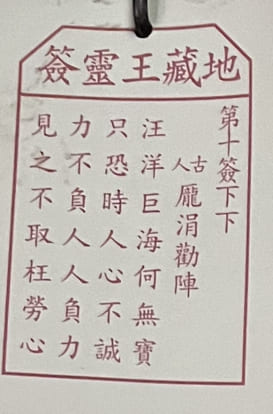 地藏王靈簽
第十簽下下
古人龐涓勸陣
汪洋巨海何無寶
只恐時人心不誠
力不負人人負力
見之不取枉勞心